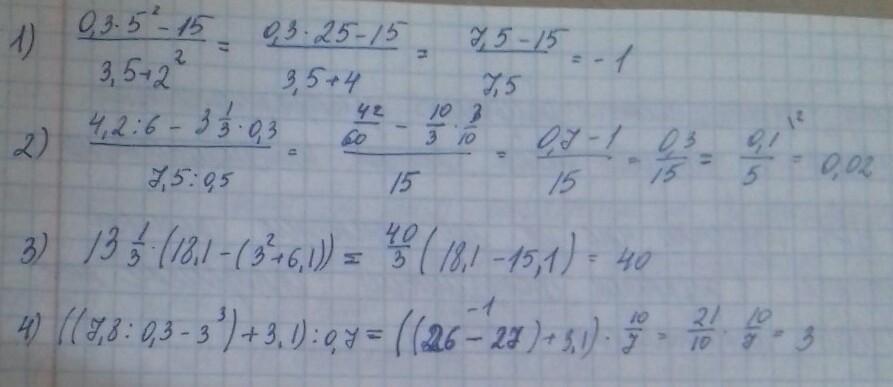 1) (0,3·5²-15)/(3,5+2²) = (0,3·25-15)/(3,5+4) = (7,5-15)/7,5 = -1
2) (4,2:6 - 3 1/3·0,3)/(7,5:0,5) = (42/60 - 10/3·3/10)/15 = (0,7-1)/15 = 0,3/15 = 0,1\²/5 = 0,02
3) 13 1/3·(18,1-(3²+6,1)) = 40/3 (18,1-15,1) = 40
4) ((7,8:0,3-3³)+3,1):0,7 = ((26 - 27)⁻¹+3,1)·10/7 = 21/10·10/7 = 3